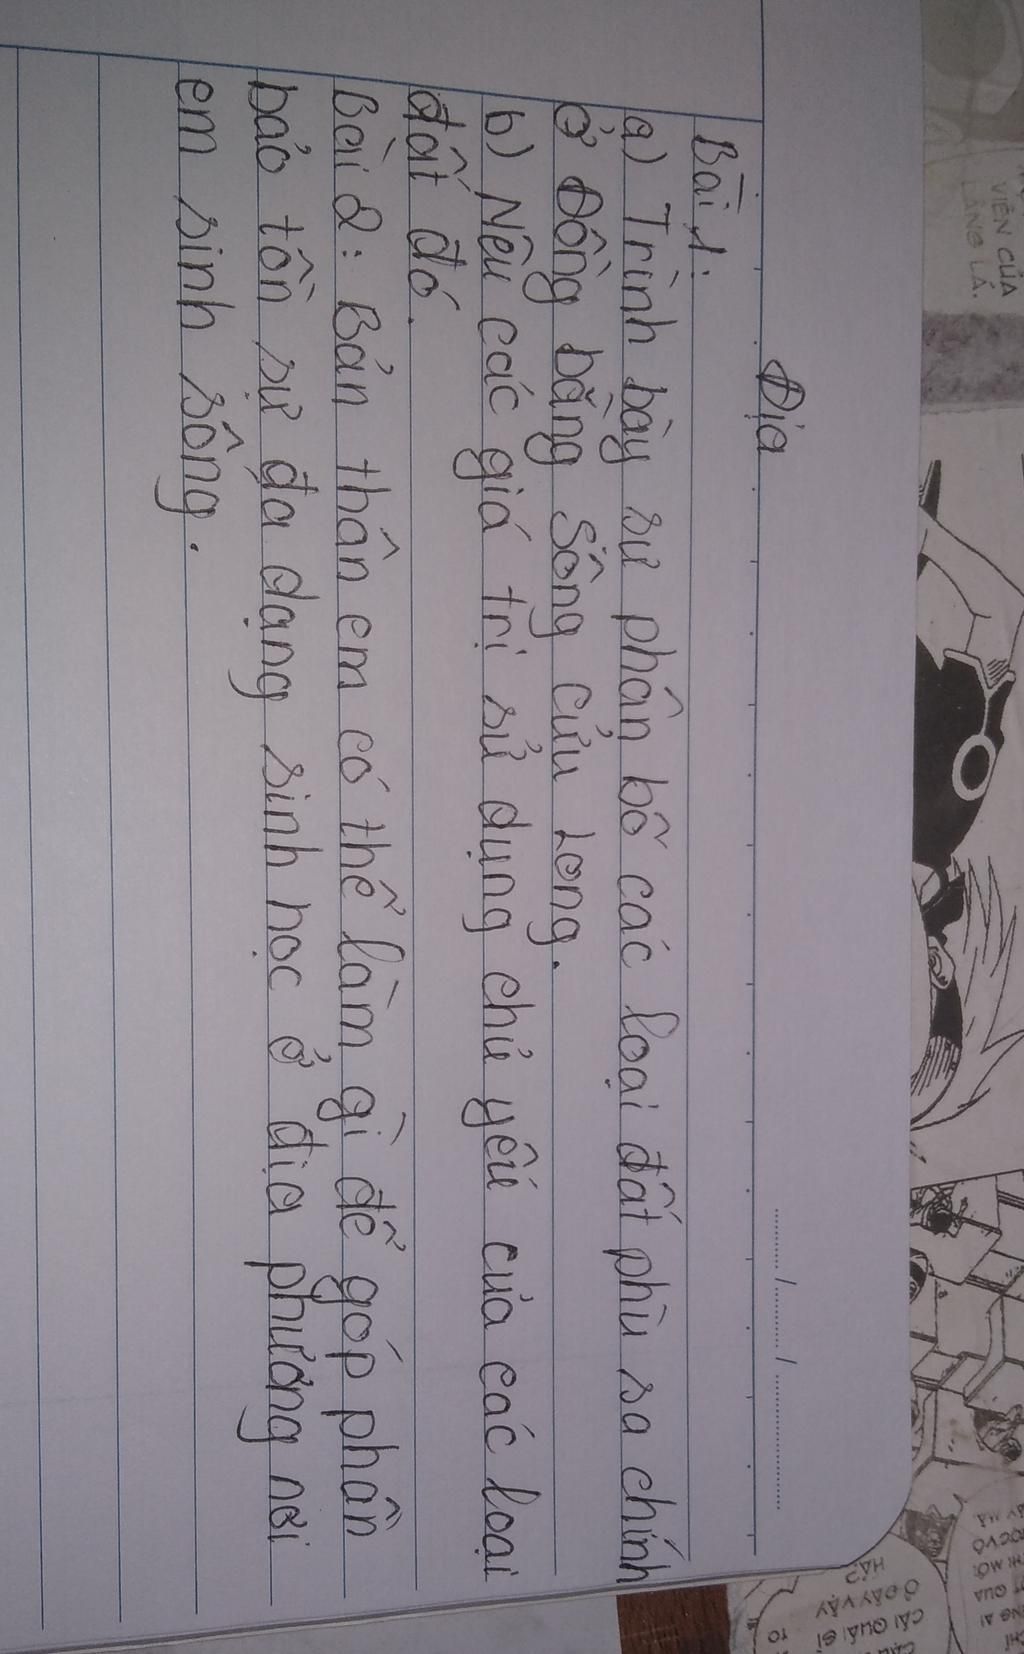 Địa
Bài 1:
a) Trình bày sự phân bố các loại đất phù sa chính
ở Đồng bằng Sông Cửu Long.
b) Nêu các giá trị sử dụng chủ yếu của các loại
đất đó.
Bài 2: Bản thân em có thể làm gì để góp phần
bảo tồn sự đa dạng sinh học ở địa phương nơi
em sinh sống.
VIÊN CỦA
LÀNG LÁ.
HẢ?
Ở ĐÂY VẬY
CÁI QUÁI GÌ